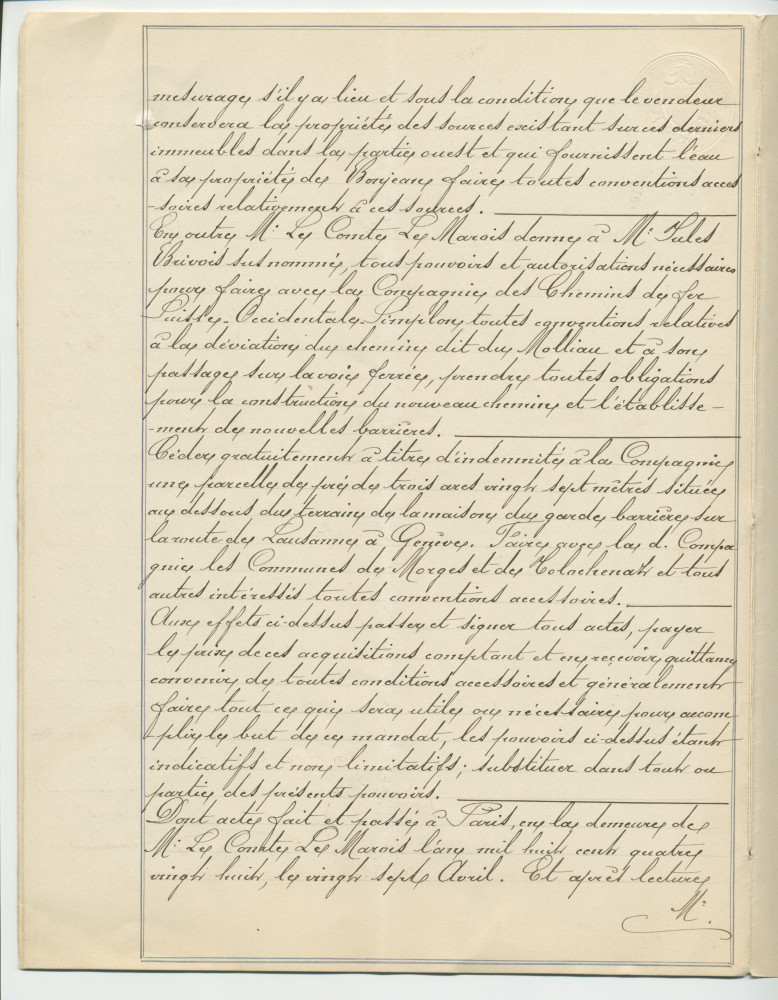 mesurage s'il y a lieu et sous la condition que le vendeur
conservera la propriété des sources existant sur ces derniers
immeubles dans la partie ouest et qui fournissent l'eau
à sa propriété de Bonjean, faire toutes conventions acces
-soires relativement à ces sources.
En outre Mr Le Comte Le Marois donne à Mr Jules
Brivois susnommé, tous pouvoirs et autorisations nécessaires
pour faire avec la Compagnie des Chemins de fer
Suisse-Occidentale-Simplon toutes conventions relatives
à la déviation du chemin dit du Molliau et à son
passage sur la voie ferrée, prendre toutes obligations
pour la construction du nouveau chemin et l'établisse-
-ment de nouvelles barrières.
Céder gratuitement à titre d'indemnité à la Compagnie
une parcelle de pré de trois ares vingt sept mètres située
au dessous du terrain de la maison du garde barrière sur
la route de Lausanne à Genève. Faire avec la d. Compa
gnie les Communes de Morges et de Tolochenaz et tous
autres intéressés toutes conventions accessoires.
Aux effets ci-dessus passer et signer tous actes, payer
le prix de ces acquisitions comptant et en recevoir quittance
convenir de toutes conditions accessoires et généralement
faire tout ce qui sera utile ou nécessaire pour accom
-plir le but de ce mandat, les pouvoirs ci-dessus étant
indicatifs et non limitatifs; substituer dans tout ou
partie des présents pouvoirs.
Dont acte fait et passé à Paris, en la demeure de
Mr Le Comte Le Marois l'an mil huit cent quatre
vingt huit, le vingt sept Avril. Et après lecture
Mr.